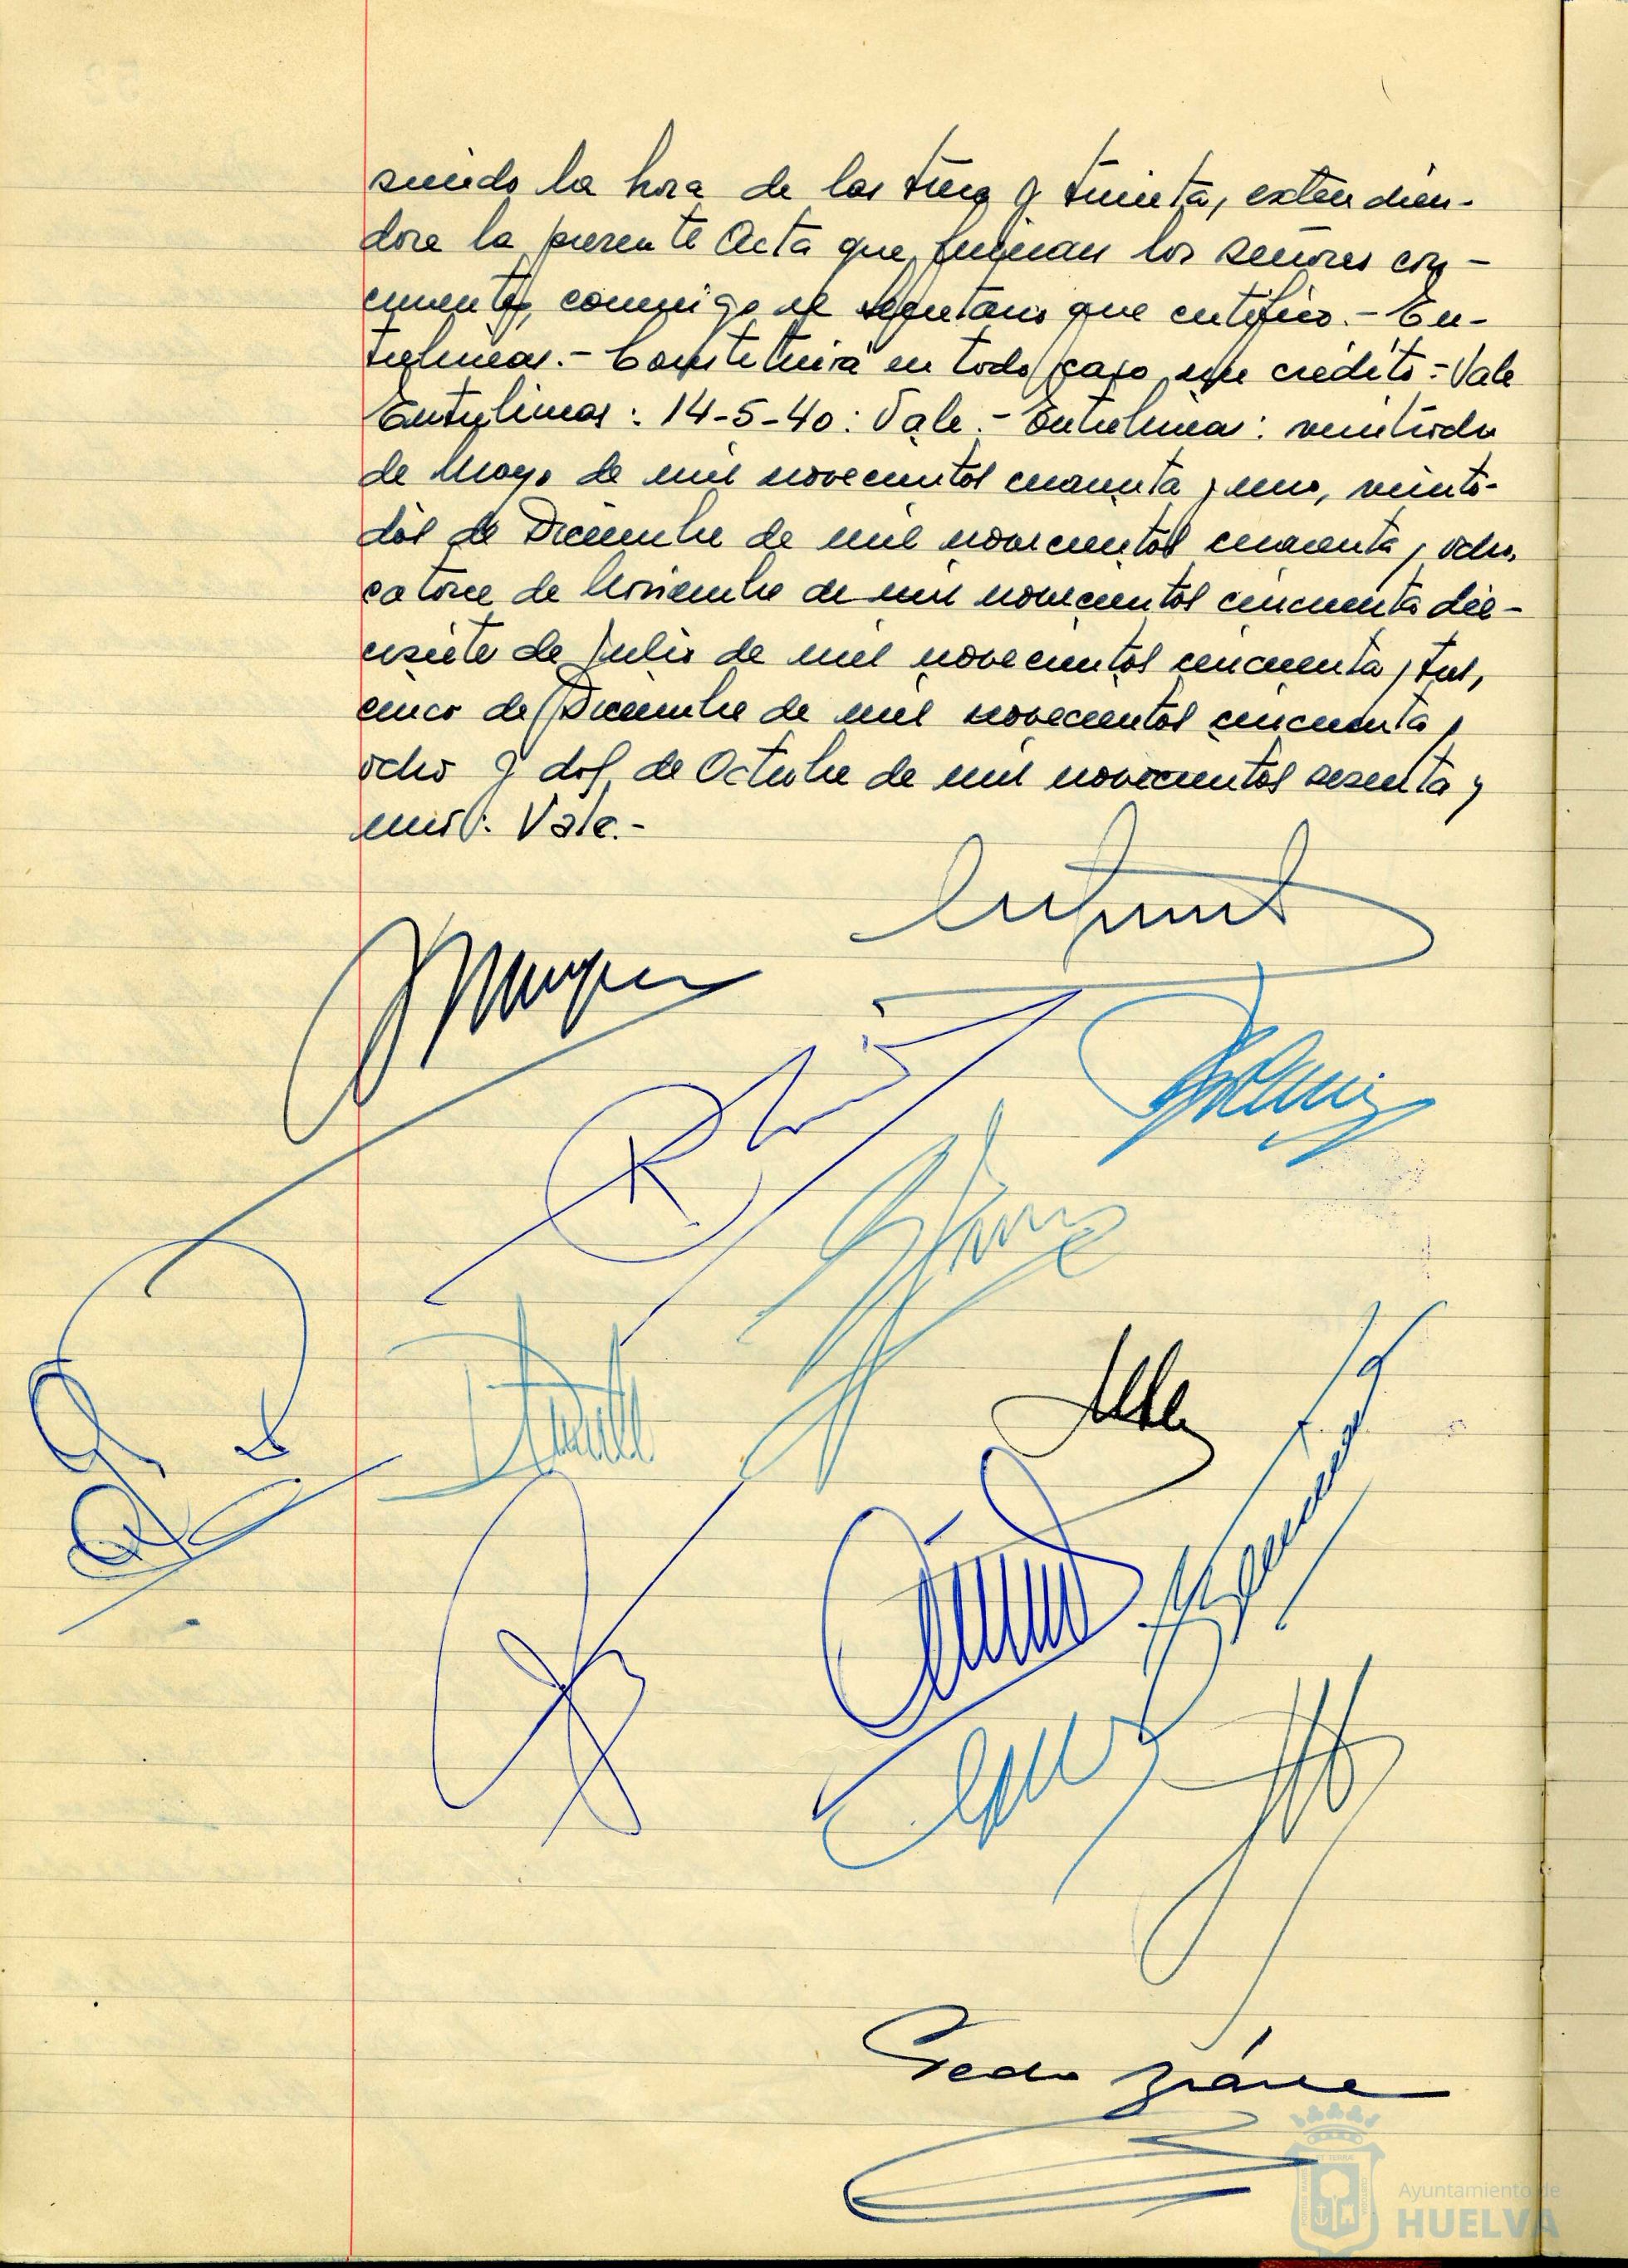 siendo la hora de las trece y treinta, extendien-
dose la presente Acta que firman los señores con-
currentes, conmigo el Secretario que certifico.- En-
trelineas.- Constituirá en todo caso un crédito = Vale
Entrelineas: 14-5-40: Vale.- Entrelineas: veintiocho
de Mayo de mil novecientos cuarenta y uno, veinti-
dós de Diciembre de mil novecientos cuarenta y ocho,
catorce de Noviembre de mil novecientos cincuenta die-
cisiete de Julio de mil novecientos cincuenta y tres,
cinco de Diciembre de mil novecientos cincuenta y
ocho y dos de Octubre de mil novecientos sesenta y
uno: Vale.-
Pedro
Ayuntamiento de
HUELVA